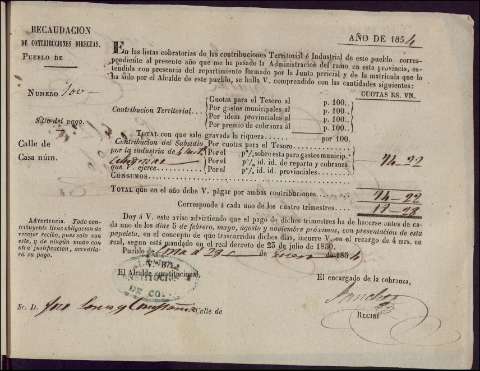 RECAUDACION
DE CONTRIBUCIONES DIRECTAS.
PUEBLO DE
NUMERO
Sitio del pago.
Calle de
Casa núm.
Advertencia. Todo contribuyente tiene obligacion de recoger recibo, pues solo con este, y de ningun modo con otra justificacion, acreditará su pago.
AÑO DE 1854
En las listas cobratorias de las contribuciones Territorial é Industrial de este pueblo correspondiente al presente año que me ha pasado la Administracion del ramo en esta provincia, estendida con presencia del repartimiento formado por la Junta pericial y de la matrícula que ha sido por el Alcalde de este pueblo, se halla V. comprendido con las cantidades siguientes:
CUOTAS RS. VN.
Contribucion Territorial.
Cuota para el Tesoro al p. 100.
Por gastos municipales al p. 100.
Por idem provinciales al p. 100.
Por premio de cobranza al p. 100.
TOTAL con que sale gravada la riqueza por 100.
Contribucion del Subsidio por la industria de
que V. ejerce.
Por cuotas para el Tesoro
Por el p% sobre esta para gastos municip.
Por el p% id. id. de reparto y cobranza
Por el p% id. id. provinciales
74-22
CONSUMOS.
TOTAL que en el año debe V. pagar por ambas contribuciones. 74-22
Corresponde á cada uno de los cuatro trimestres.
Doy á V. este aviso advirtiendo que el pago de dichos trimestres ha de hacerse antes de cada uno de los dias 5 de febrero, mayo, agosto y noviembre próximos, con presentacion de esta papeleta, en el concepto de que trascurridos dichos dias, incurre V. en el recargo de 4 mrs. en real, segun está mandado en el real decreto de 23 de julio de 1850.
de enero de 1854
El Alcalde constitucional,
El encargado de la cobranza,
Sanchez
RECIBÍ
Sr. D.
Calle de